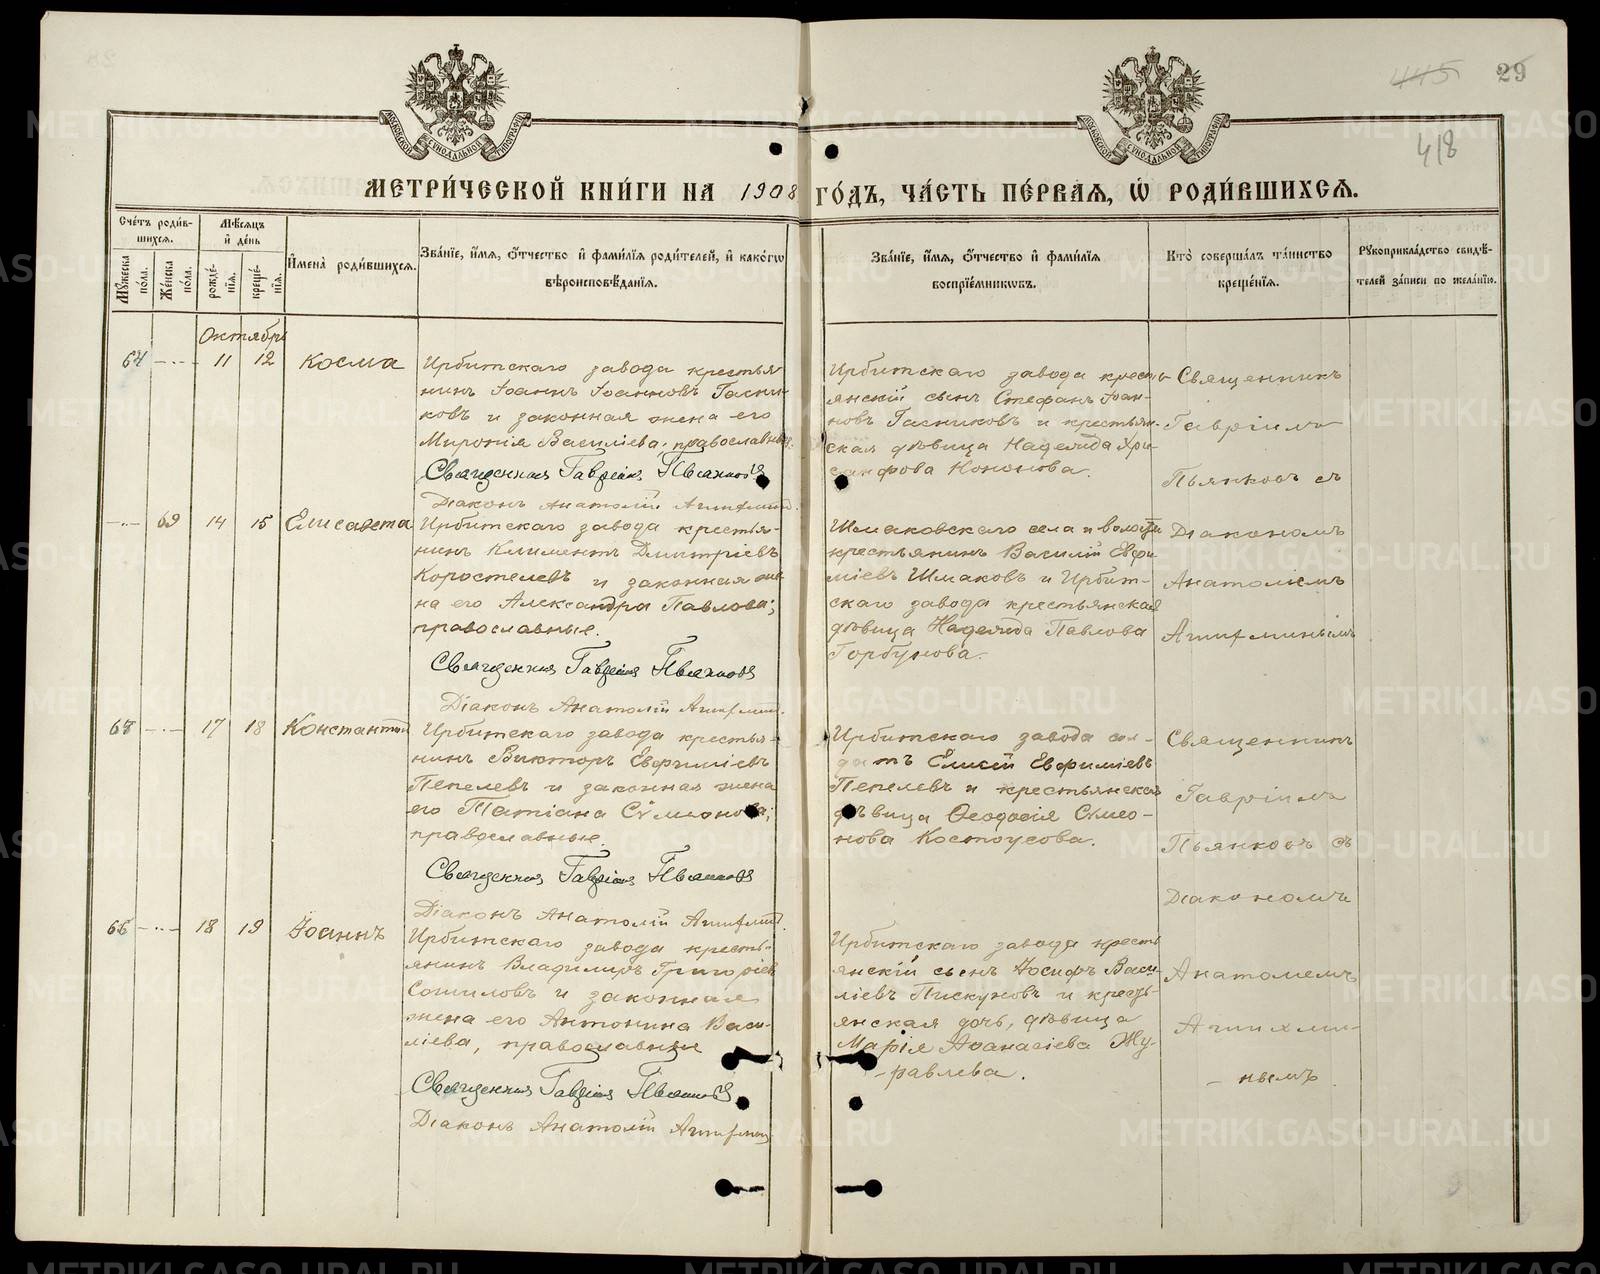 445 29
418
МОСКОВСКОЙ СѴНОДАЛЬНОЙ ТИПОГРАФІИ
МОСКОВСКОЙ СѴНОДАЛЬНОЙ ТИПОГРАФІИ
МЕТРИ́ЧЕСКОЙ КНИ́ГИ НА 1908 ГО́ДЪ, ЧА́СТЬ ПЕ́РВАЯ, Ѡ҆ РОДИ́ВШИХСѦ.
Сче́тъ роди́в-
шихсѧ.
Мꙋ́жеска по́ла.
Же́нска по́ла.
Мѣ́сѧцъ
и҆ де́нь
рожде́-
нїѧ.
креще́-
нїѧ.
И҆мена̀ роди́вшихсѧ.
Зва́нїе, и҆́мѧ, ѻ҆́тчество и҆ фами́лїѧ роди́телей, и҆ како́гѡ
вѣроисповѣ́данїѧ.
Зва́нїе, и҆́мѧ, ѻ҆́тчество и҆ фами́лїѧ
воспрїе́мникѡвъ.
Кто̀ соверша́лъ та́инство
креще́нїѧ.
Рꙋкоприкла́дство свидѣ́-
телей за́писи по жела́нїю.
Октябрь
64 11 12 Косма
Ирбитскаго завода крестья
нинъ Іоаннъ Іоанновъ Гасни-
ковъ и законная жена его
Миропія Василіева; православные.
Священникъ Гавріилъ Пьянковъ
Діаконъ Анатолій
Ирбитскаго завода кресть-
янскій сынъ Стефанъ Іоан-
новъ Гасниковъ и крестьян-
ская дѣвица Надежда Хри-
санфова Кононова.
Священникъ
Гавріилъ
Пьянковъ съ
69 14 15 Елисавета
Ирбитскаго завода крестья-
нинъ Климентъ Дмитріевъ
Коростелевъ и законная же-
на его Александра Павлова;
православные.
Священникъ Гавріилъ Пьянковъ
Діаконъ Анатолій
Шмаковскаго села и волости
крестьянинъ Василій Евфи-
міевъ Шмаковъ и Ирбит-
скаго завода крестьянская
дѣвица Надежда Павлова
Горбунова.
Діакономъ
Анатоліемъ
17 18 Константинъ
Ирбитскаго завода крестья-
нинъ Викторъ Евфиміевъ
Пепелевъ и законная жена
его Татіана Сѵмеонова;
православные.
Священникъ Гавріилъ Пьянковъ
Діаконъ Анатолій
Ирбитскаго завода сол-
датъ Елисей Евфиміевъ
Пепелевъ и крестьянская
дѣвица Ѳеодосія Симео-
нова Костоусова.
Священникъ
Гавріилъ
Пьянковъ съ
Діакономъ
66 18 19 Іоаннъ
Ирбитскаго завода кресть-
янинъ Владимиръ Григоріевъ
Сошиловъ и законная
жена его Антонина Васи-
ліева, православные
Священникъ Гавріилъ Пьянковъ
Діаконъ Анатолій
Ирбитскаго завода кресть
янскій сынъ Іосифъ Васи-
ліевъ Пискуновъ и кресть-
янская дочь, дѣвица
Марія Аѳанасіева Жу-
равлева.
Анатоліемъ
нымъ
METRIKI.GASO-URAL.RU